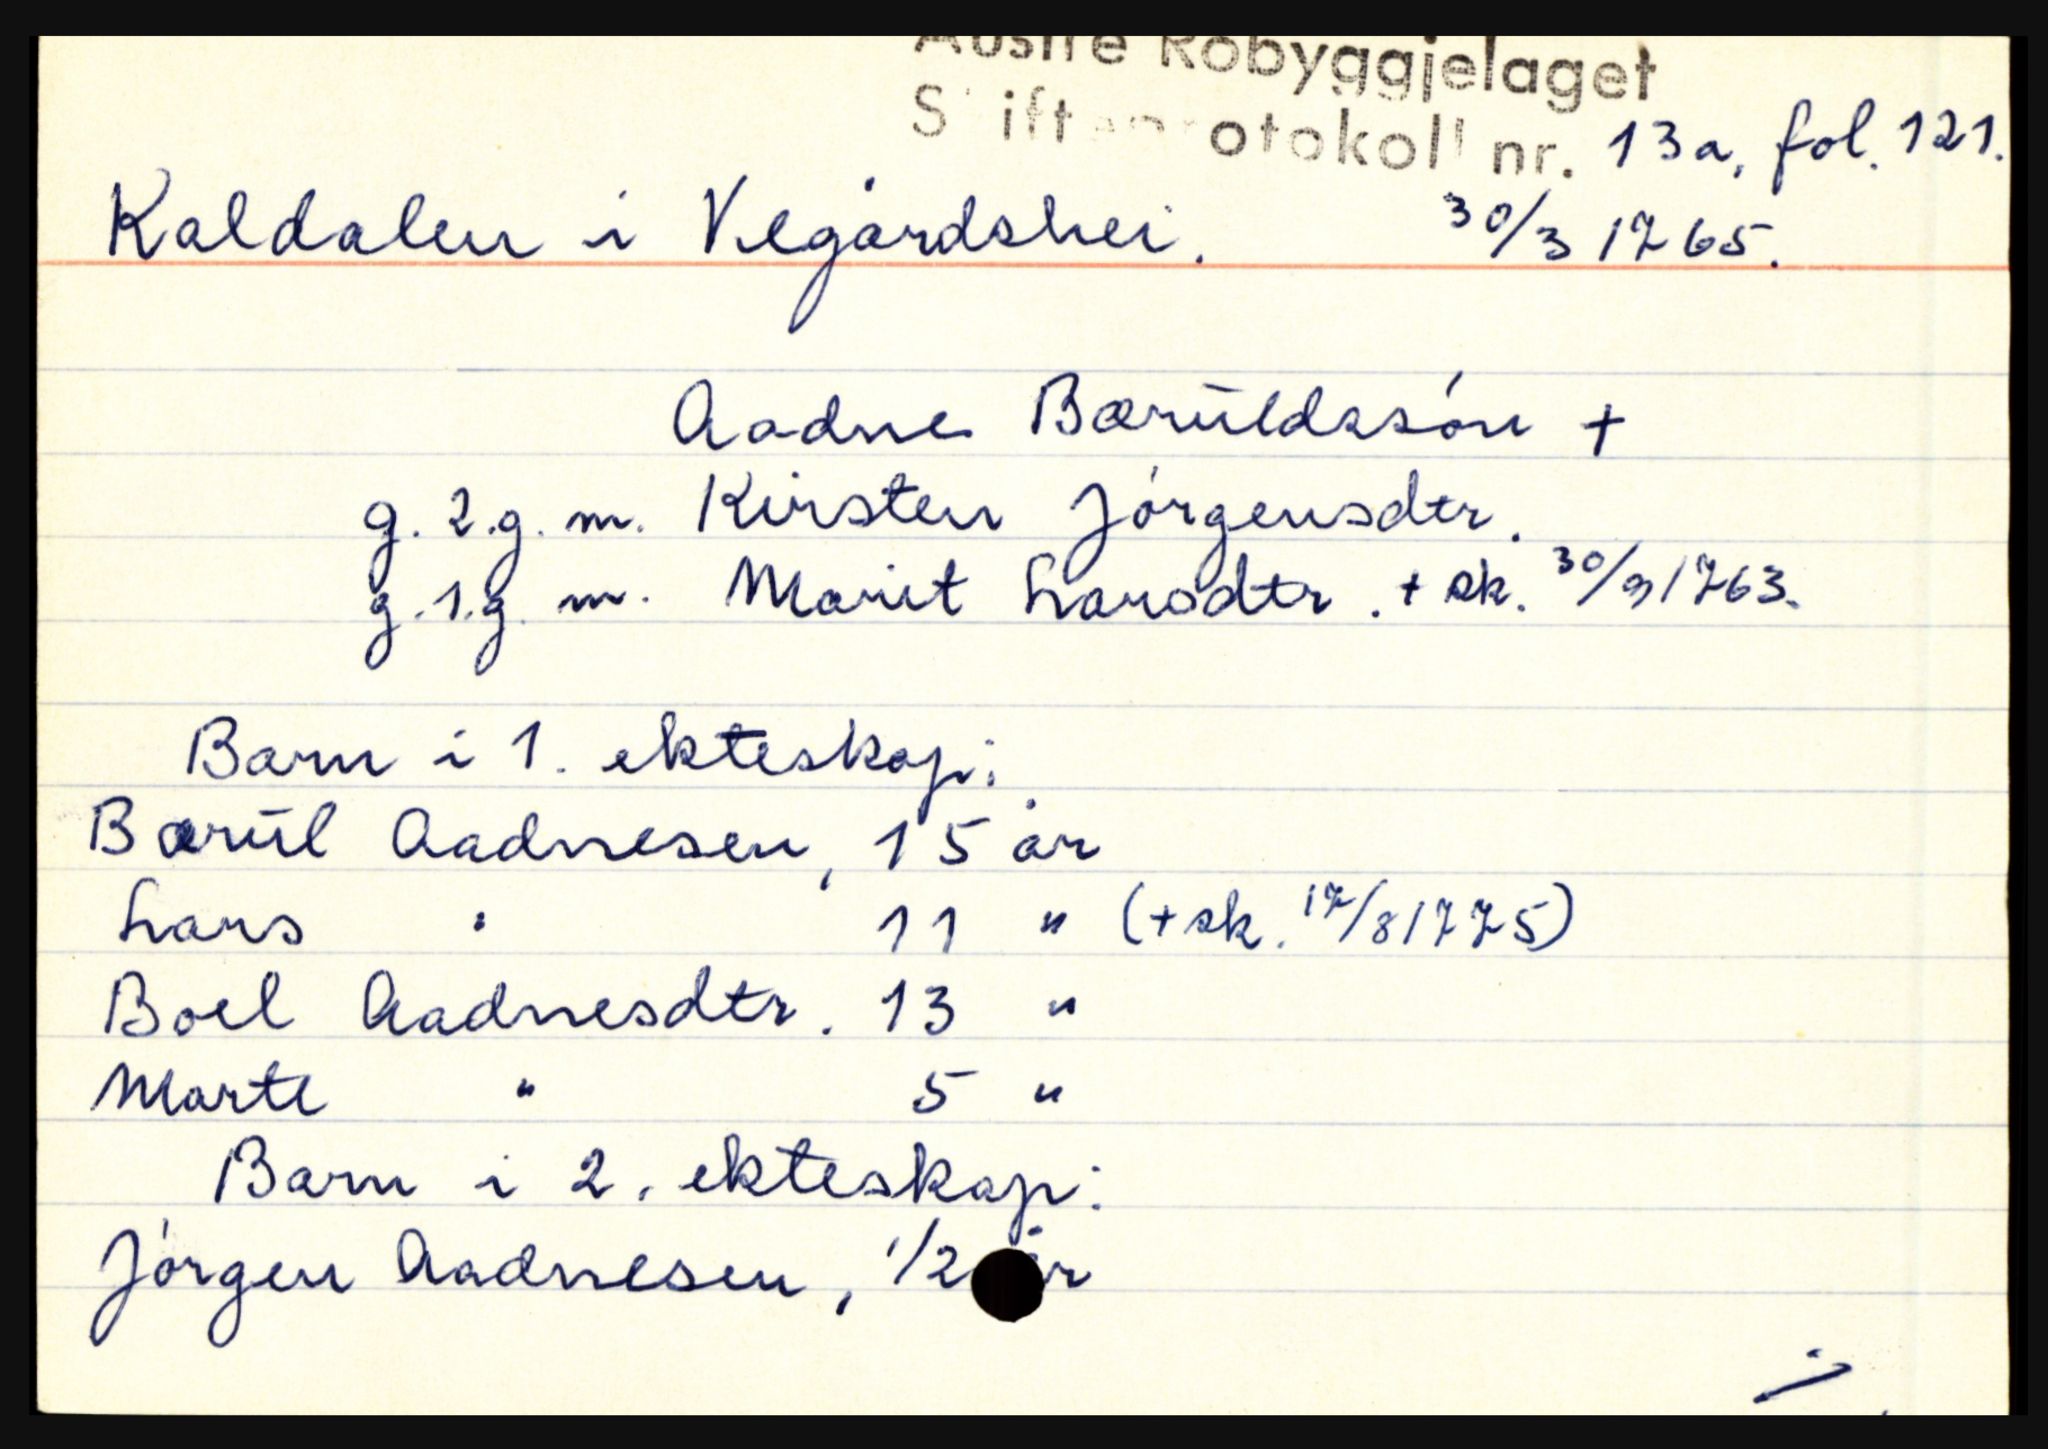 Austre Robyggjelaget
Skifteprotokoll nr. 13a, fol. 121.
Kaldalen i Vegårdshei. 30/3 1765.
Aadne Bærŭldssón +
g. 2. g. m. Kirsten Jórgensdtr.
g. 1. g. m. Marit Larsdtr. + sk. 30/9 1763.
Barn i 1. ekteskap:
Bærŭl Aadnesen, 15 år
Lars " 11 " (+ sk. 17/8 1775)
Boel Aadnesdtr. 13 "
Marte " 5 "
Barn i 2. ekteskap:
Jórgen Aadnesen, 1/2 år